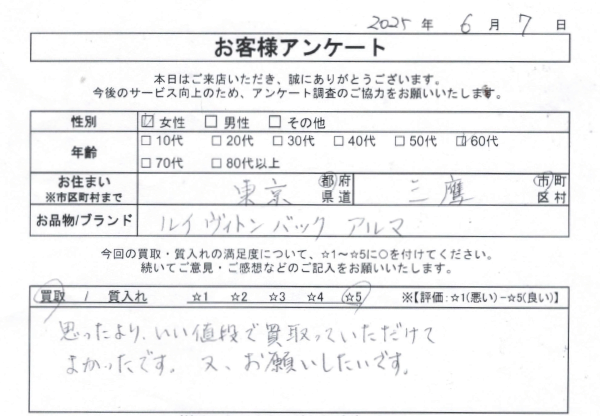 2025 年 6 月 7 日
お客様アンケート
本日はご来店いただき、誠にありがとうございます。
今後のサービス向上のため、アンケート調査のご協力をお願いいたします。
性別 ☑ 女性 □ 男性 □ その他
年齢 □ 10代 □ 20代 □ 30代 □ 40代 □ 50代 ☑ 60代
□ 70代 □ 80代以上
お住まい ※市区町村まで 東京 都府県道 三鷹 市町区村
お品物/ブランド ルイヴィトン バック アルマ
今回の買取・質入れの満足度について、☆1～☆5に○を付けてください。
続いてご意見・ご感想などのご記入をお願いいたします。
買取 / 質入れ ☆1 ☆2 ☆3 ☆4 ☆5 ※【評価:☆1(悪い)-☆5(良い)】
思ったより、いい値段で買取っていただけて
よかったです。又、お願いしたいです。